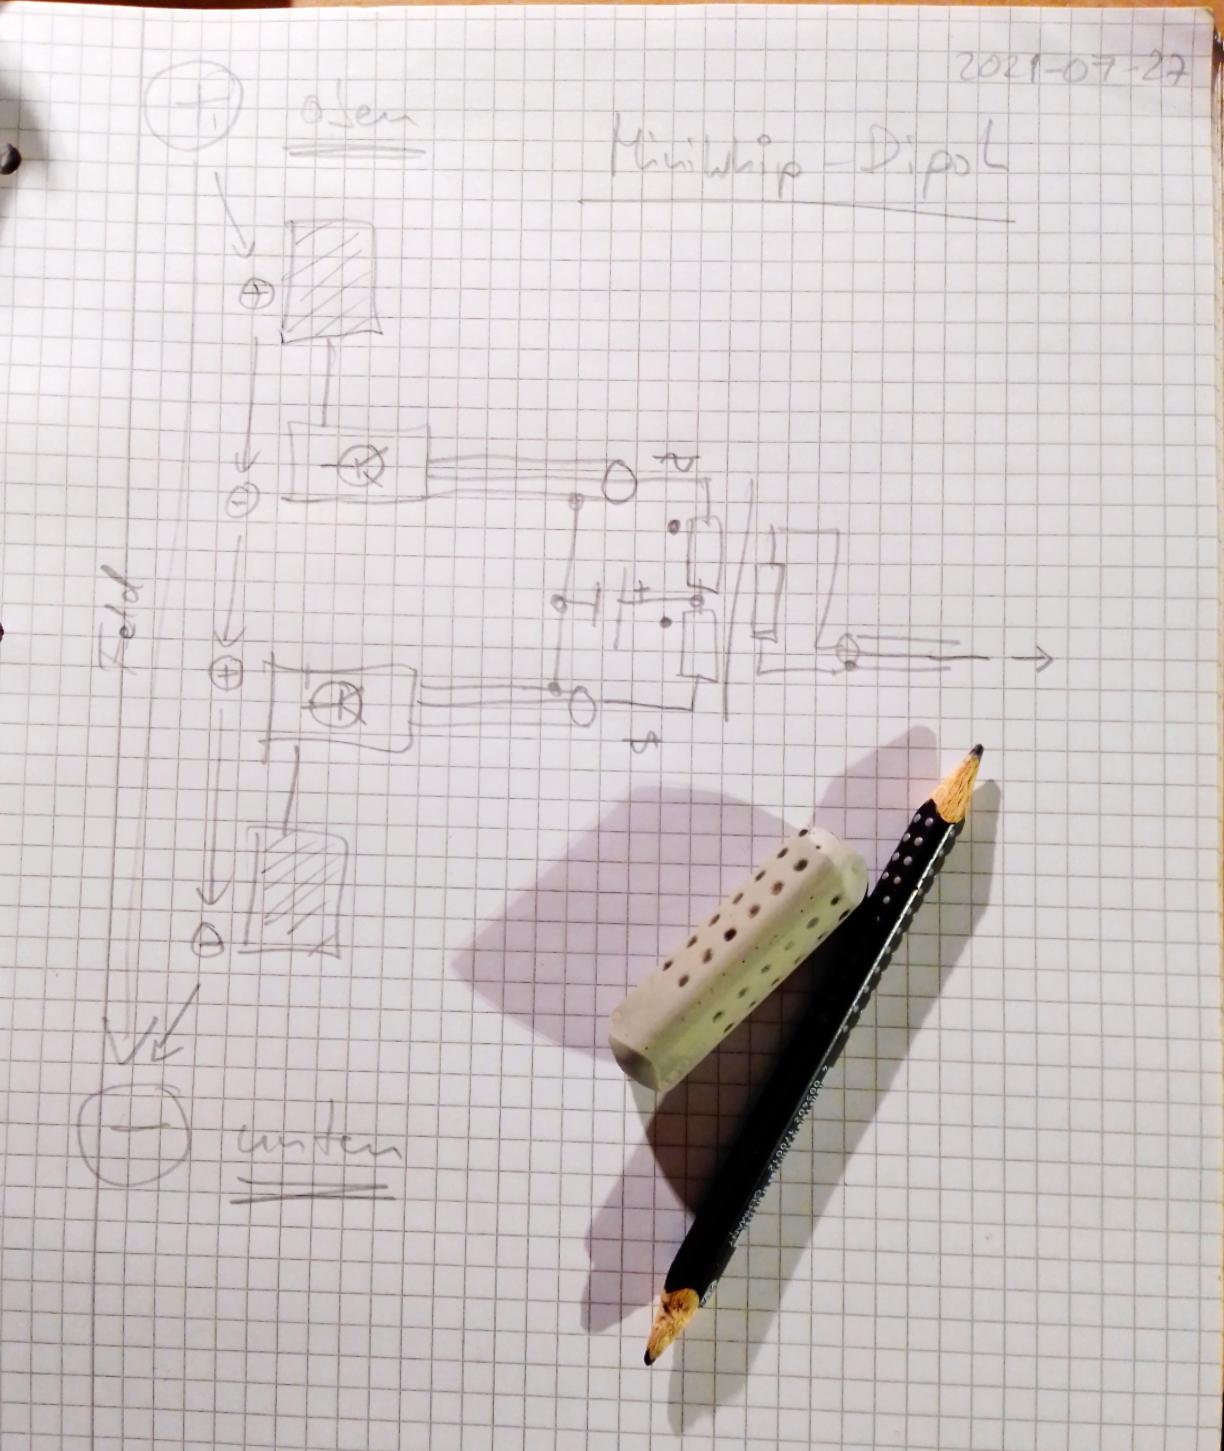 2021-07-27
+ oben
Miniwhip-Dipol
+
-
Feld
+
+
-
- unten